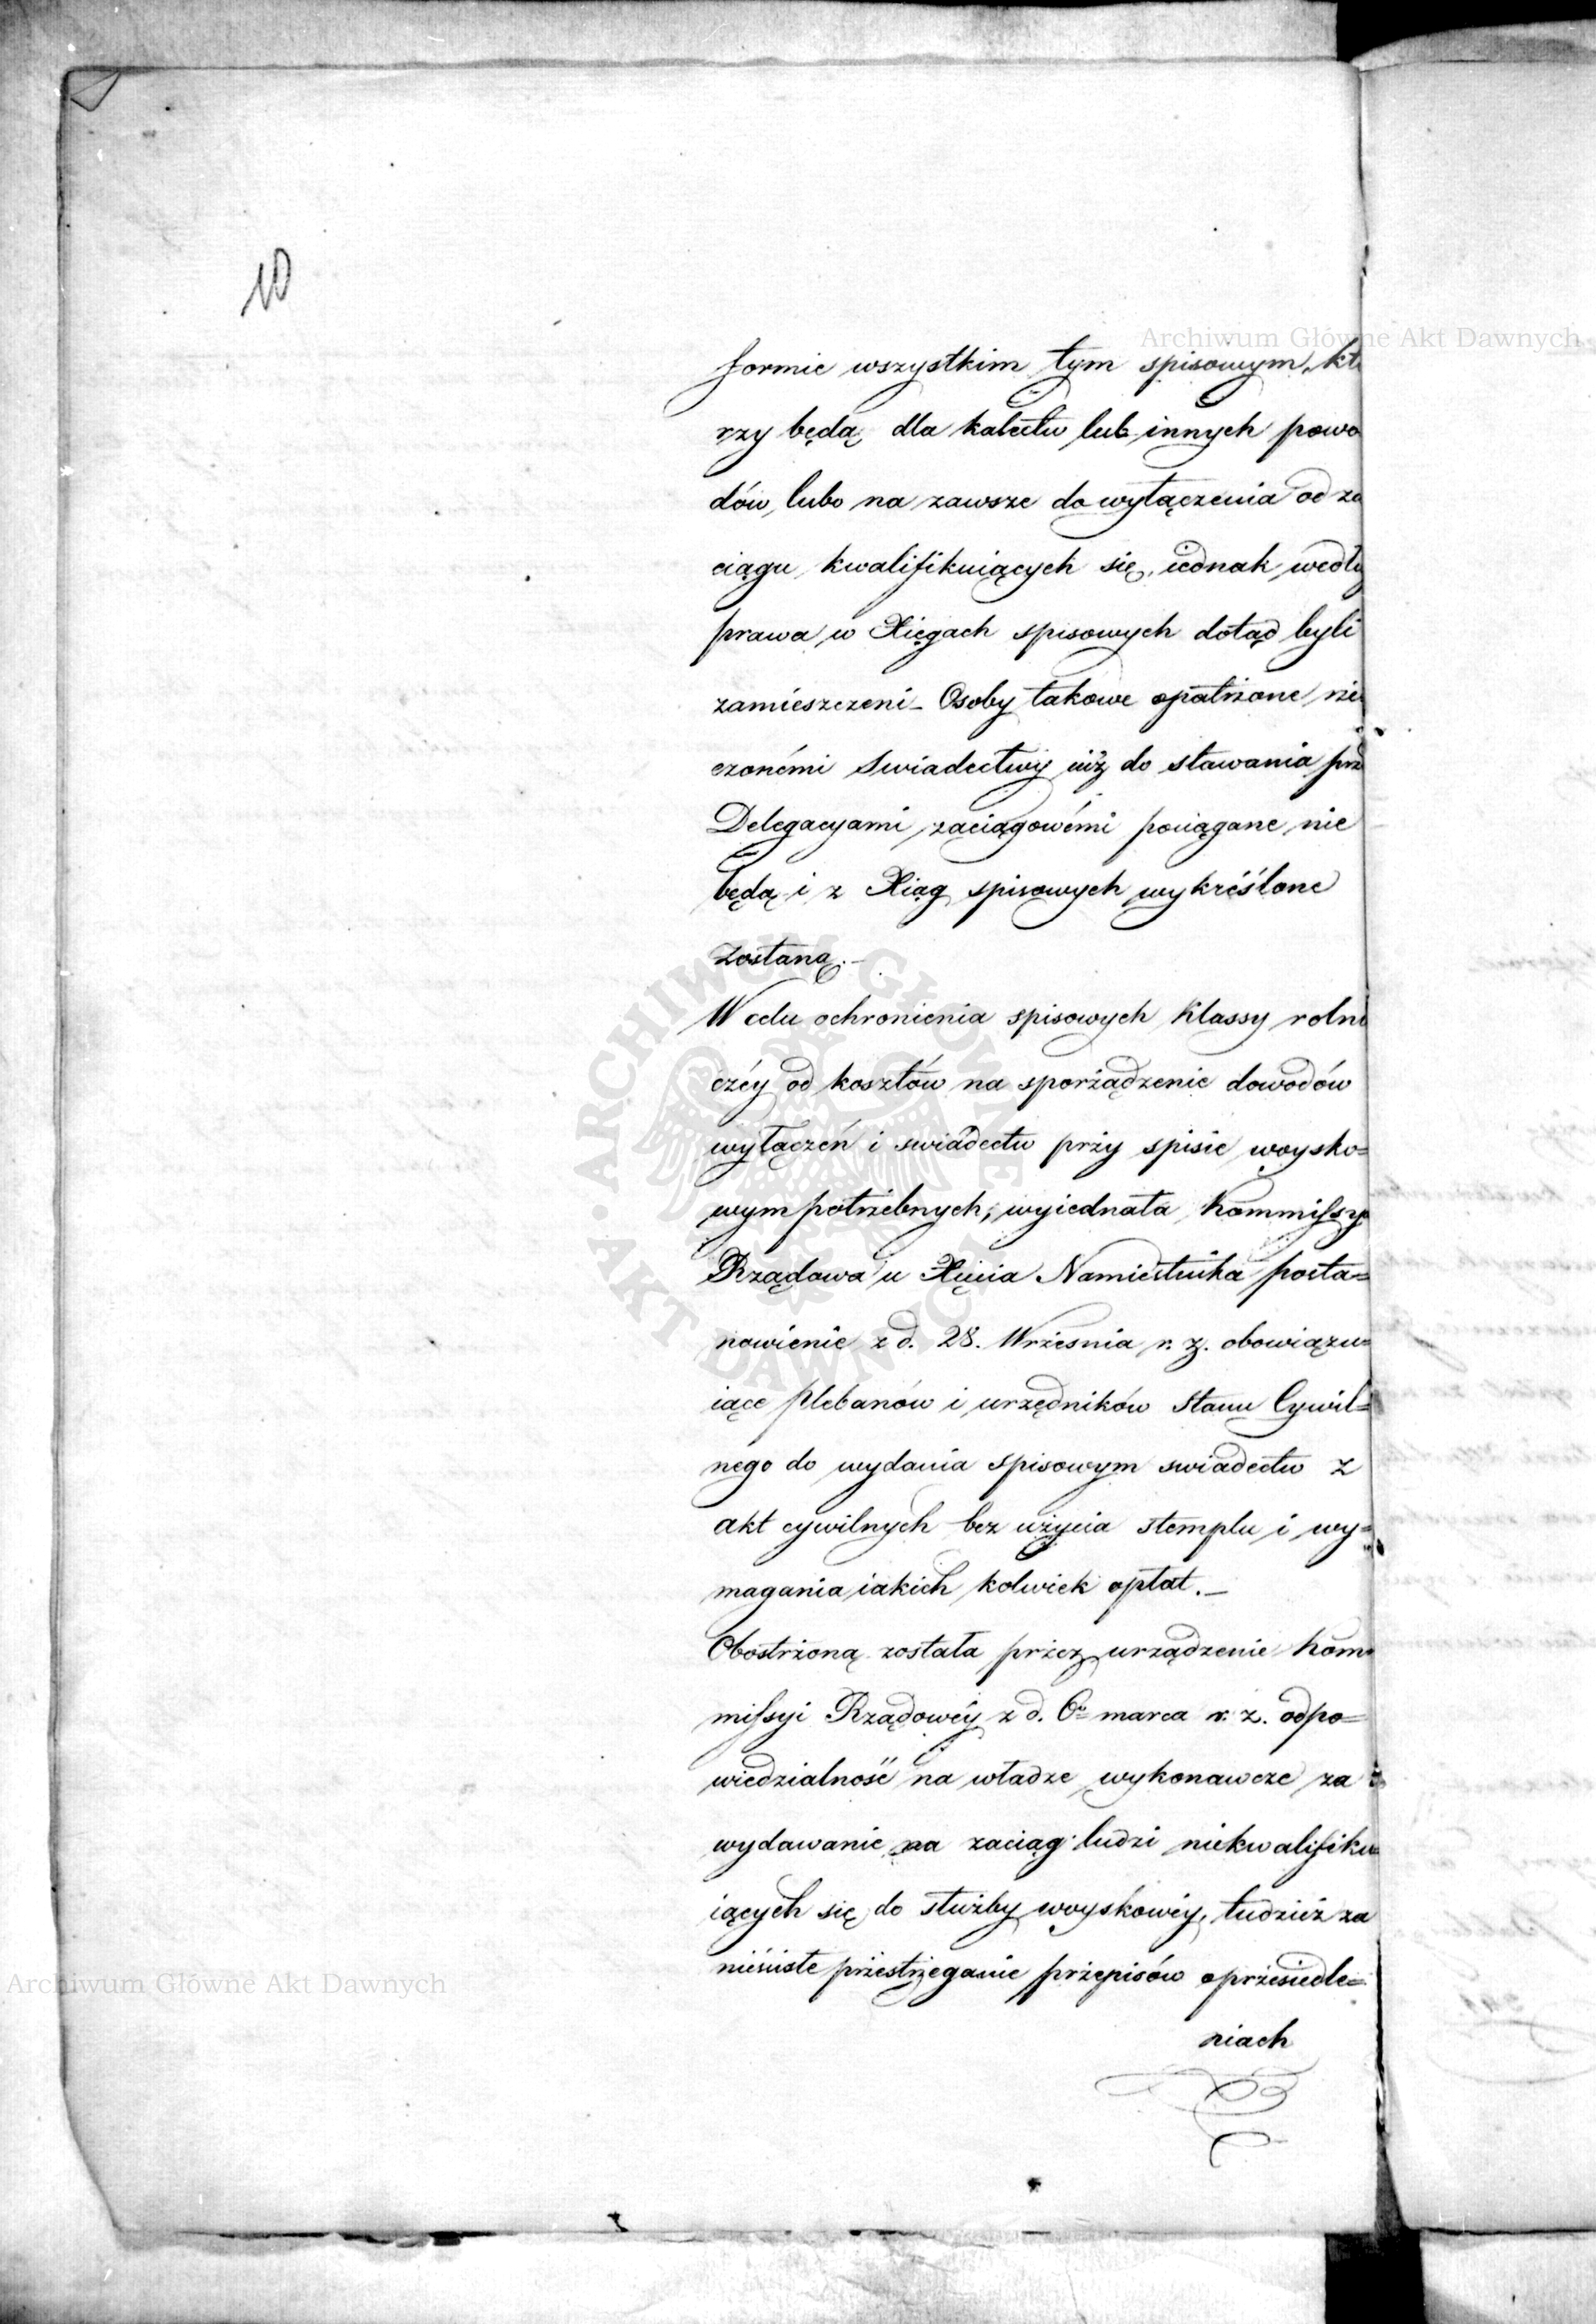 10
Archiwum Główne Akt Dawnych
formie wszystkim tym spisowym, któ
rzy będą dla kalectw lub innych powo
dów, lubo na zawsze do wyłączenia od za
ciągu kwalifikuiących się, iednak wedłu
prawa w Xięgach spisowych dotąd byli
zamieszczeni – Osoby takowe opatrzone rze
czonémi Swiadectwy iuż do stawania prze
Delegacyami zaciągowémi pociągane nie
będą i z Xiąg spisowych wykréślone
zostaną. –
W celu ochronienia spisowych Klassy rolni
czéy od kosztów na sporządzenie dowodów
wyłączeń i swiadectw przy spisie woysko=
wym potrzebnych, wyiednała Kommissy
Rządowa u Xięcia Namiestnika posta=
nowienie z d. 28. Września r. z. obowiązu=
iące plebanów i urzędników Stanu Cywil=
nego do wydania spisowym swiadectw z
akt cywilnych bez użycia stemplu i wy=
magania iakich kolwiek opłat. –
Obostrzoną została przez urządzenie Kom=
missyi Rządowéy z d. 6go marca r. z. odpo=
wiedzialność na władze wykonawcze za
wydawanie na zaciąg ludzi niekwalifiku=
iących się do służby woyskowéy, tudzież za
nieścisłe przestrzeganie przepisów o przesiedle=
niach
Archiwum Główne Akt Dawnych
ARCHIWUM GŁÓWNE AKT DAWNYCH